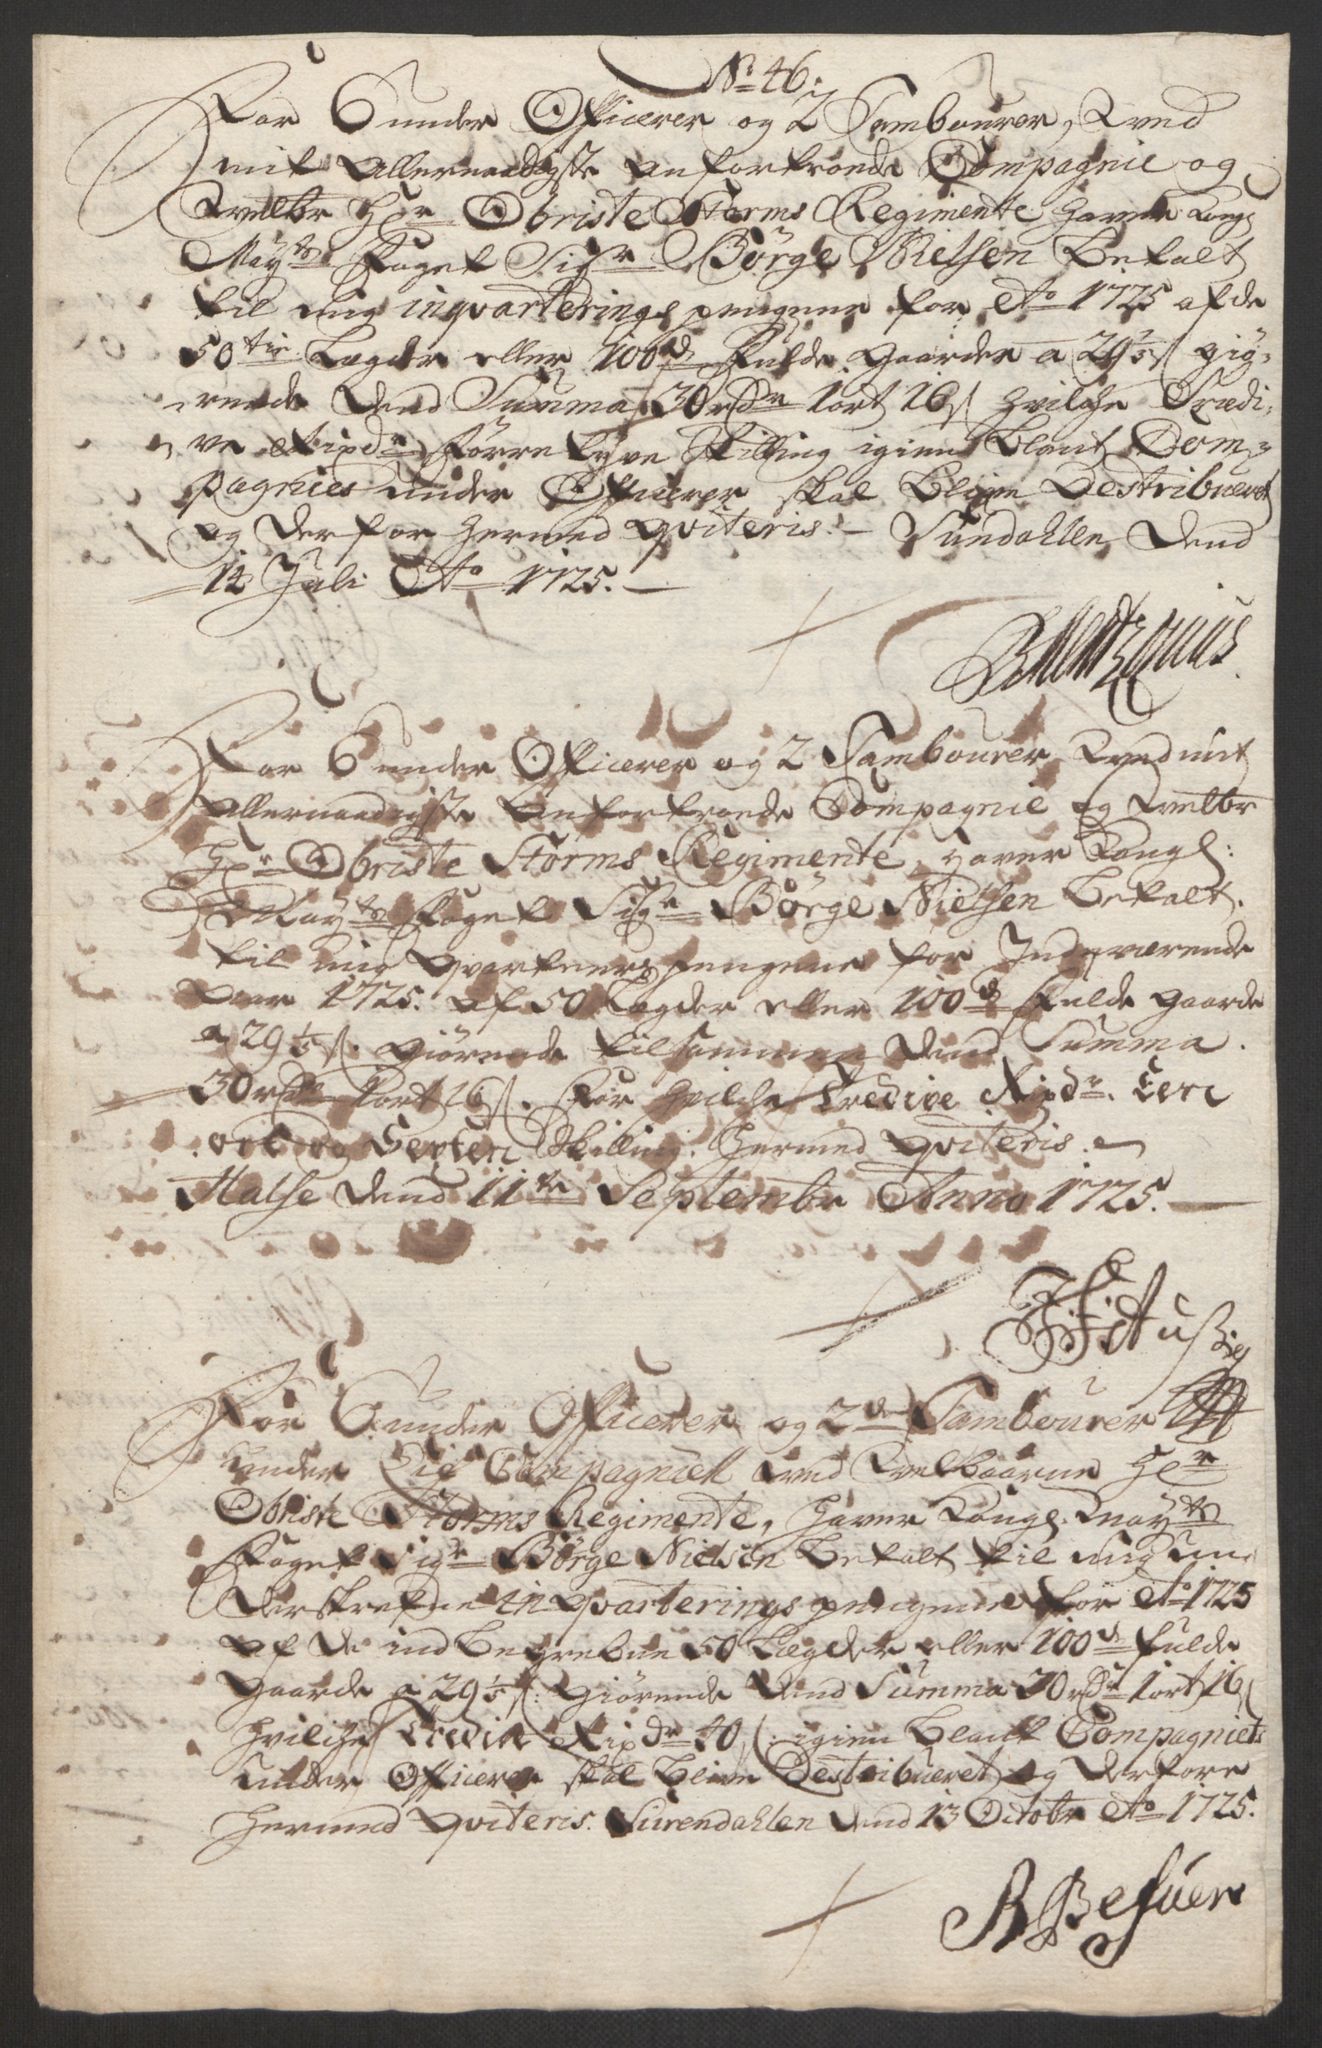 No 46.
For 6 under Officerer og 2 Tambourer, ved
mit allernaadigste anfortroede Compagnie og
velbr Hr. Obriste Storms Regimente haver Kongl
Mayts Foget Sigr Børge Nielsen betalt
til mig inqvarterings pengene for Ao 1725 af de
50tive Lægder eller 100de Fulde Gaarder a 29 1/5 s giø-
rende dend Summa 30 rdr 1 ort 16 s hvilche Tredi-
ve Rixdr førretyve skilling igien blant Com-
pagnies under Officerer skal blive Destribueret
og derfor hermed qviteris. Sundahlen dend
12 Juli Ao 1725.
For 6 under Officerer og 2 Tambourer ved mit
allernaadigste anfortroede Compagnie og velbr
Hr Obriste Storms Regimente, haver Kongl:
Mayts Foget Sigr Børge Nielsen betalt
til mig qvarteers pengene for Indeværende
aar 1725. af 50 Lægder eller 100de Fulde Gaarde
a 29 1/5 s. giørende tilsammen dend Summa
30 rdr 1 ort 16 s. for hvilche Tredive Rixdr. Een
ort og Sexten skilling hermed qviteris.
Halse dend 11te Septembr Anno 1725.
For 6 under Officerer og 2de Tambourer
under Compagniet ved velbaarne Hr
Obriste Storms Regimente, haver Kongl. Mayts
Foget Sigr Børge Nielsen betalt til mig un-
derskrefne inqvarterings pengene for Ao 1725
af de indbegrebne 50 Lægder eller 100de fulde
Gaarde a 29 1/5 s: giørende dend Summa 30 rdr 1 ort 16 s
hvilche Tredive Rixdr 40 s: igien blant Compagniets
under Officerer skal blive Destribueret og derfore
hermed qviteris. Surendahlen dend 13 Octobr Ao 1725.